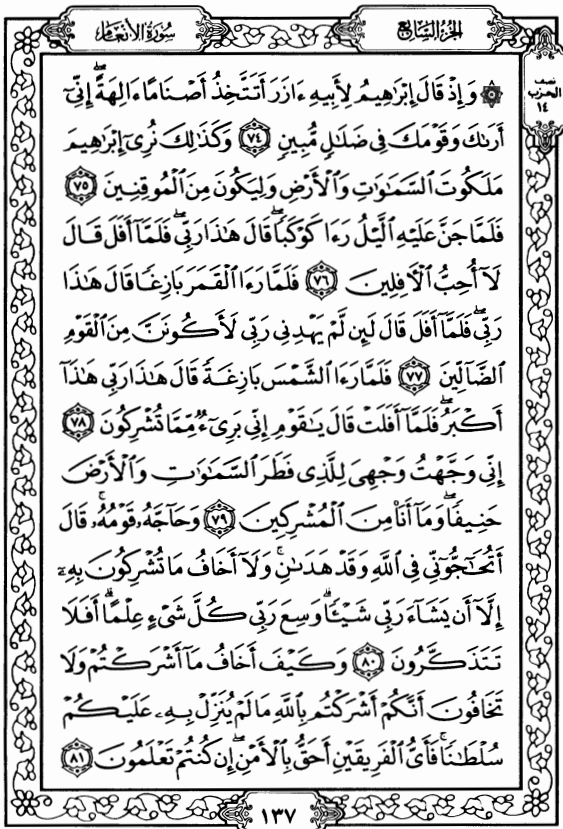 سُورَةُ الأَنْعَام
الجُزءُ السَّابِعُ
نصف
الحزب
١٤
۞ وَإِذْ قَالَ إِبْرَٰهِيمُ لِأَبِيهِ ءَازَرَ أَتَتَّخِذُ أَصْنَامًا ءَالِهَةً ۖ إِنِّىٓ
أَرَىٰكَ وَقَوْمَكَ فِى ضَلَٰلٍ مُّبِينٍ ٧٤ وَكَذَٰلِكَ نُرِىٓ إِبْرَٰهِيمَ
مَلَكُوتَ السَّمَٰوَٰتِ وَالْأَرْضِ وَلِيَكُونَ مِنَ الْمُوقِنِينَ ٧٥
فَلَمَّا جَنَّ عَلَيْهِ الَّيْلُ رَءَا كَوْكَبًا ۖ قَالَ هَٰذَا رَبِّى ۖ فَلَمَّآ أَفَلَ قَالَ
لَآ أُحِبُّ الْآفِلِينَ ٧٦ فَلَمَّا رَءَا الْقَمَرَ بَازِغًا قَالَ هَٰذَا
رَبِّى ۖ فَلَمَّآ أَفَلَ قَالَ لَئِن لَّمْ يَهْدِنِى رَبِّى لَأَكُونَنَّ مِنَ الْقَوْمِ
الضَّآلِّينَ ٧٧ فَلَمَّا رَءَا الشَّمْسَ بَازِغَةً قَالَ هَٰذَا رَبِّى هَٰذَآ
أَكْبَرُ ۖ فَلَمَّآ أَفَلَتْ قَالَ يَٰقَوْمِ إِنِّى بَرِىٓءٌ مِّمَّا تُشْرِكُونَ ٧٨
إِنِّى وَجَّهْتُ وَجْهِىَ لِلَّذِى فَطَرَ السَّمَٰوَٰتِ وَالْأَرْضَ
حَنِيفًا ۖ وَمَآ أَنَا۠ مِنَ الْمُشْرِكِينَ ٧٩ وَحَآجَّهُۥ قَوْمُهُۥ ۚ قَالَ
أَتُحَٰٓجُّوٓنِّى فِى اللَّهِ وَقَدْ هَدَىٰنِ ۚ وَلَآ أَخَافُ مَا تُشْرِكُونَ بِهِۦٓ
إِلَّآ أَن يَشَآءَ رَبِّى شَيْـًٔا ۗ وَسِعَ رَبِّى كُلَّ شَىْءٍ عِلْمًا ۗ أَفَلَا
تَتَذَكَّرُونَ ٨٠ وَكَيْفَ أَخَافُ مَآ أَشْرَكْتُمْ وَلَا
تَخَافُونَ أَنَّكُمْ أَشْرَكْتُم بِاللَّهِ مَا لَمْ يُنَزِّلْ بِهِۦ عَلَيْكُمْ
سُلْطَٰنًا ۚ فَأَىُّ الْفَرِيقَيْنِ أَحَقُّ بِالْأَمْنِ ۖ إِن كُنتُمْ تَعْلَمُونَ ٨١
١٣٧